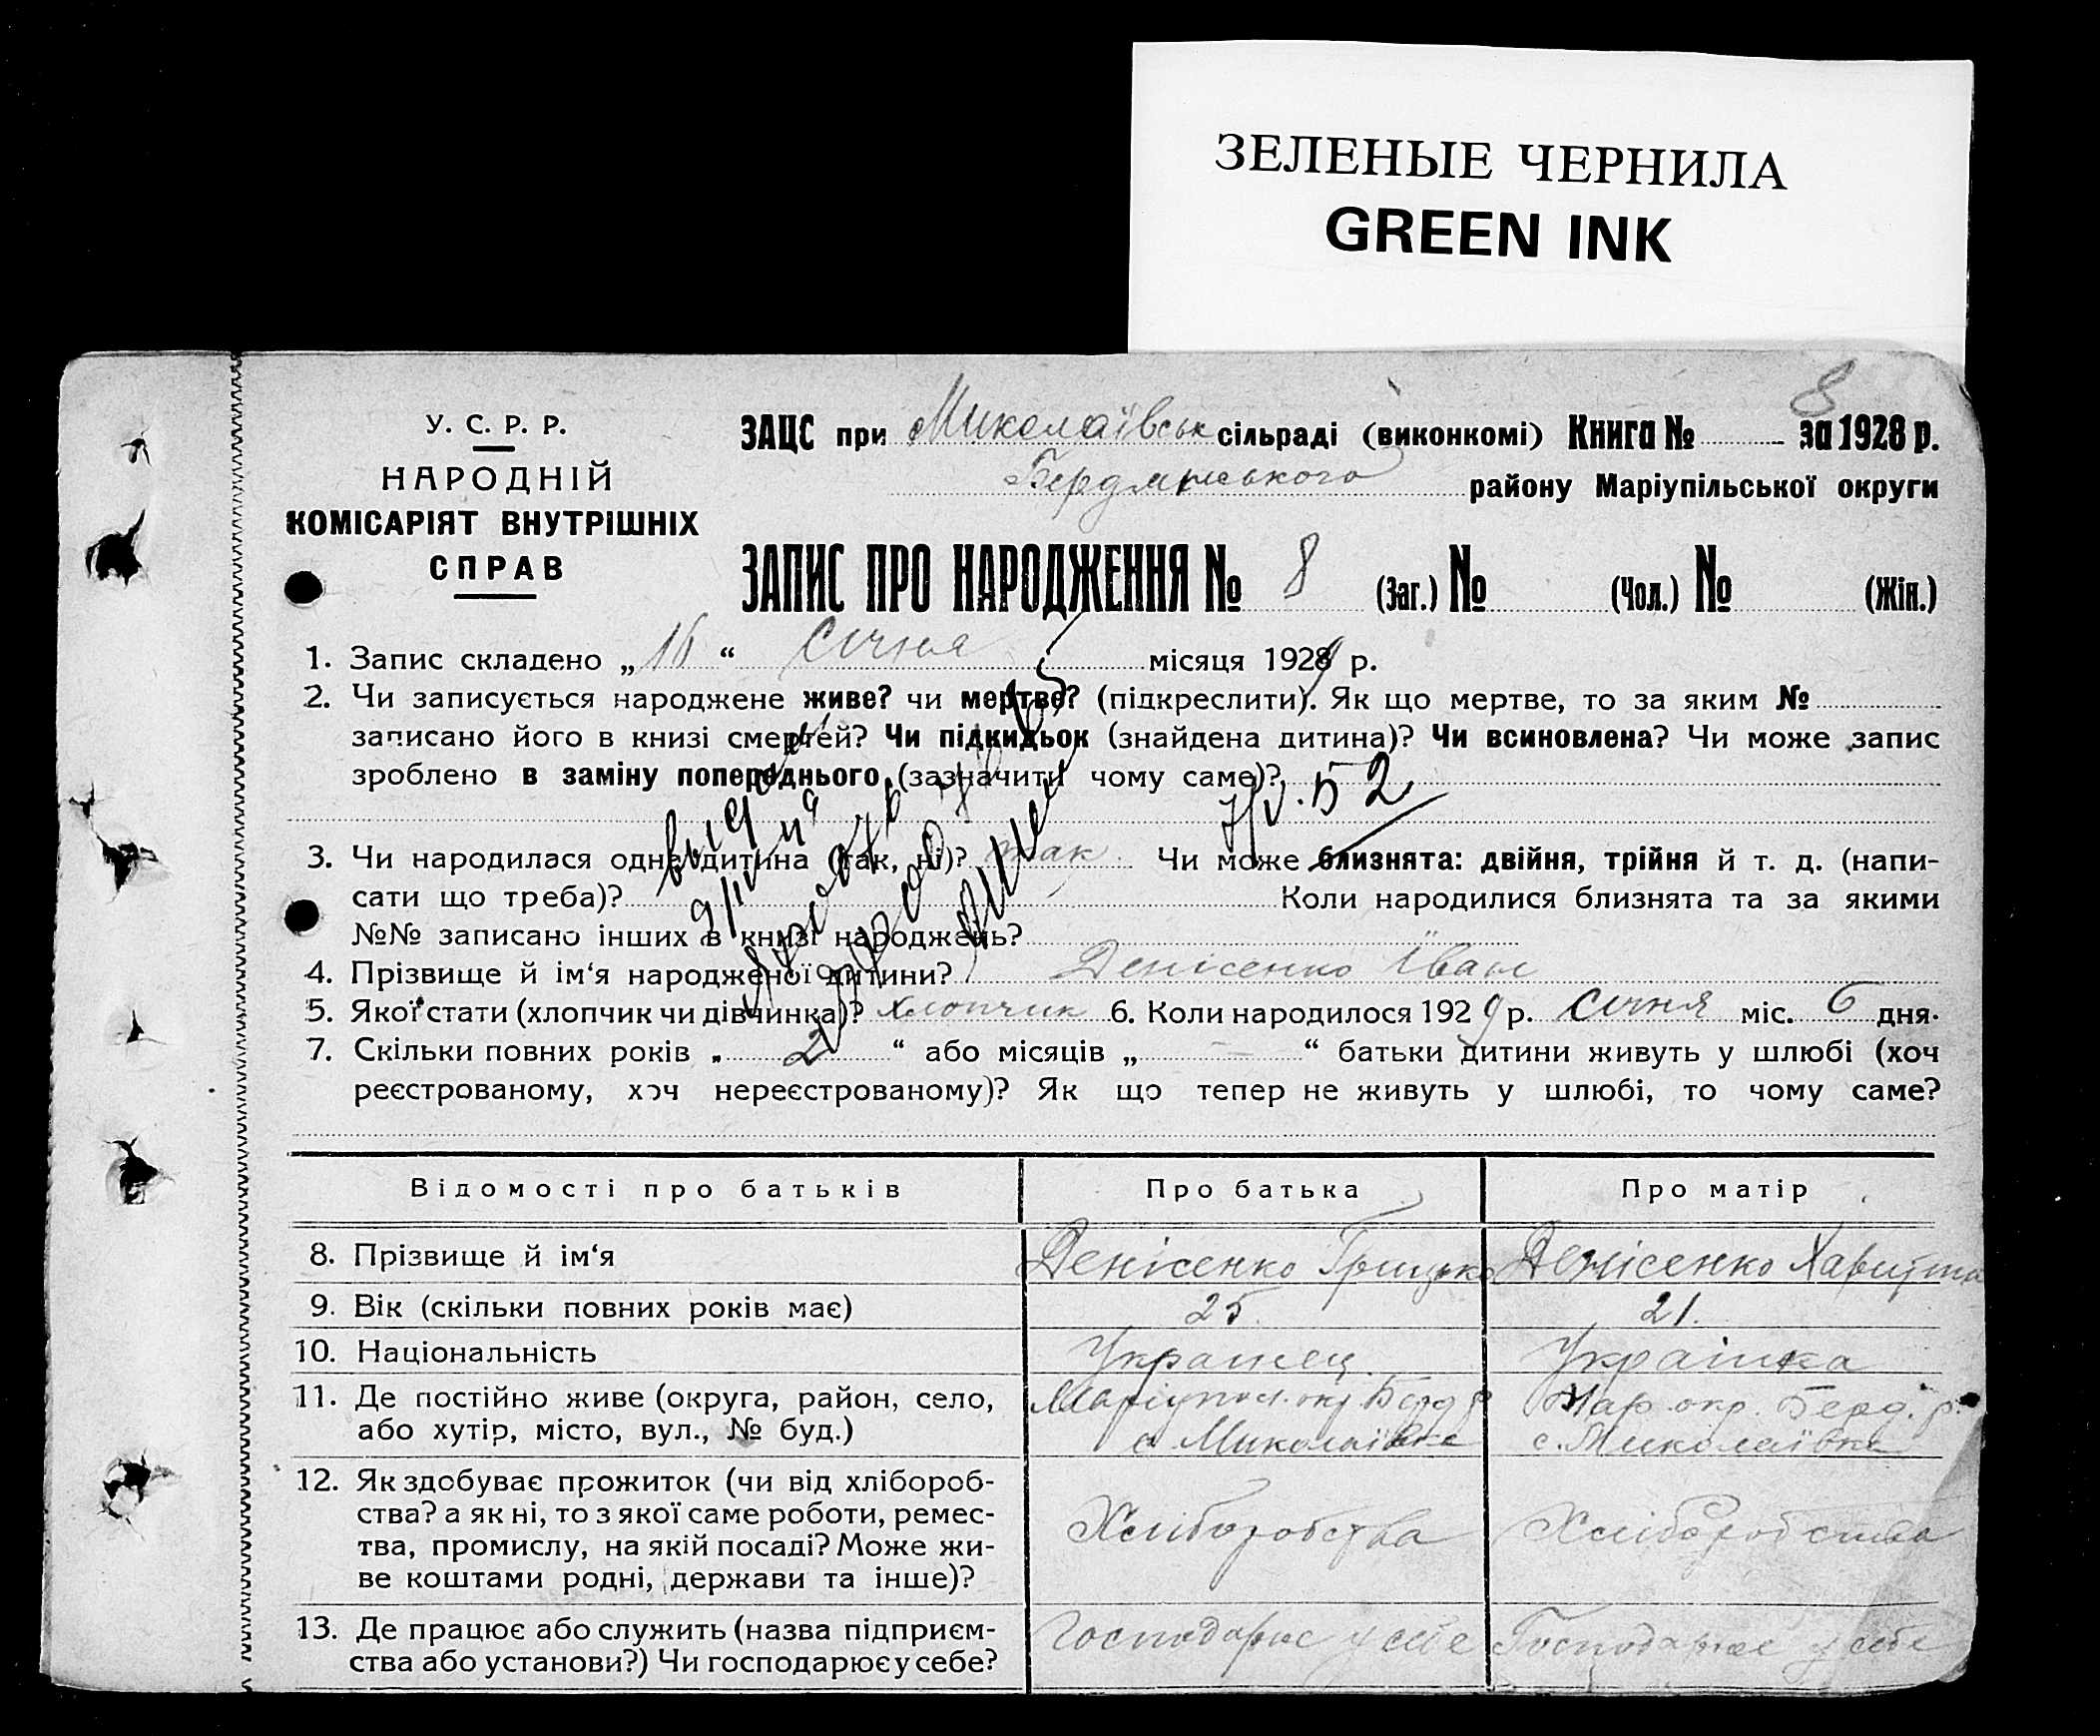 ЗЕЛЕНЫЕ ЧЕРНИЛА
GREEN INK
8
У. С. Р. Р.
НАРОДНІЙ
КОМІСАРІЯТ ВНУТРІШНІХ
СПРАВ
ЗАЦС при Миколаївськ сільраді (виконкомі) Книга № за 1928 р.
Бердянського району Маріупільської округи
ЗАПИС ПРО НАРОДЖЕННЯ № 8 (Заг.) № (Чол.) № (Жін.)
1. Запис складено „16“ Січня місяця 1929 р.
2. Чи записується народжене живе? чи мертве? (підкреслити). Як що мертве, то за яким №
записано його в книзі смертей? Чи підкидьок (знайдена дитина)? Чи всиновлена? Чи може запис
зроблено в заміну попереднього (зазначити чому саме)?
52
3. Чи народилася одна дитина (так, ні)? так Чи може близнята: двійня, трійня й т. д. (напи-
сати що треба)? Коли народилися близнята та за якими
№№ записано інших в книзі народжень?
4. Прізвище й ім‘я народженої дитини? Денісенко Іван
5. Якої стати (хлопчик чи дівчинка)? хлопчик 6. Коли народилося 1929 р. Січня міс. 6 дня.
7. Скільки повних років „2“ або місяців „ — “ батьки дитини живуть у шлюбі (хоч
реєстрованому, хоч нереєстрованому)? Як що тепер не живуть у шлюбі, то чому саме?
Відомості про батьків Про батька Про матір
8. Прізвище й ім‘я Денісенко Грицько Денісенко Харитина
9. Вік (скільки повних років має) 25 21.
10. Національність Українец Українка
11. Де постійно живе (округа, район, село, Маріупол. окр. Берд р Мар. окр. Берд. р.
або хутір, місто, вул., № буд.) с. Миколаївка с. Миколаївка
12. Як здобуває прожиток (чи від хлібороб-
ства? а як ні, то з якої саме роботи, ремес- Хліборобства Хліборобства
тва, промислу, на якій посаді? Може жи-
ве коштами родні, держави та інше)?
13. Де працює або служить (назва підприєм- Господарює у себе Господарює у себе
ства або установи?) Чи господарює у себе?